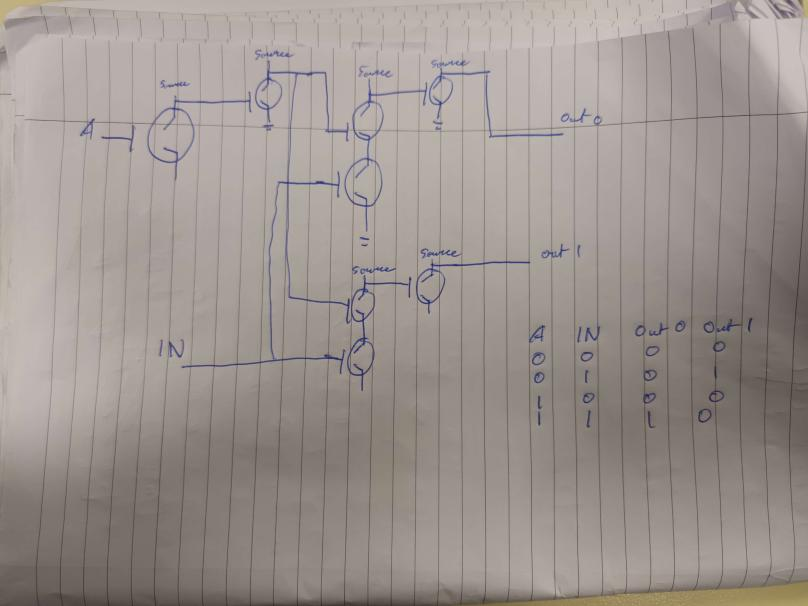 Source
Source
Source
Source
A
Out 0
Source
Source
Out 1
IN
A IN Out 0 Out 1
0 0 0 0
0 1 0 1
1 0 0 0
1 1 1 0